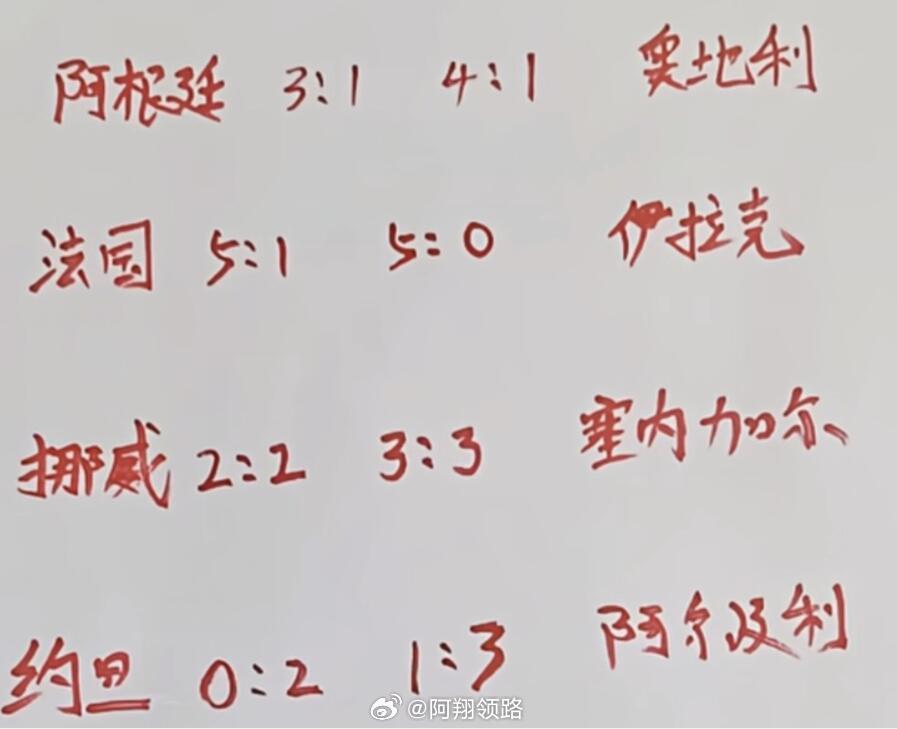 阿根廷 3:1 4:1 奥地利
法国 5:1 5:0 伊拉克
挪威 2:2 3:3 塞内加尔
约旦 0:2 1:3 阿尔及利
@阿翔领路